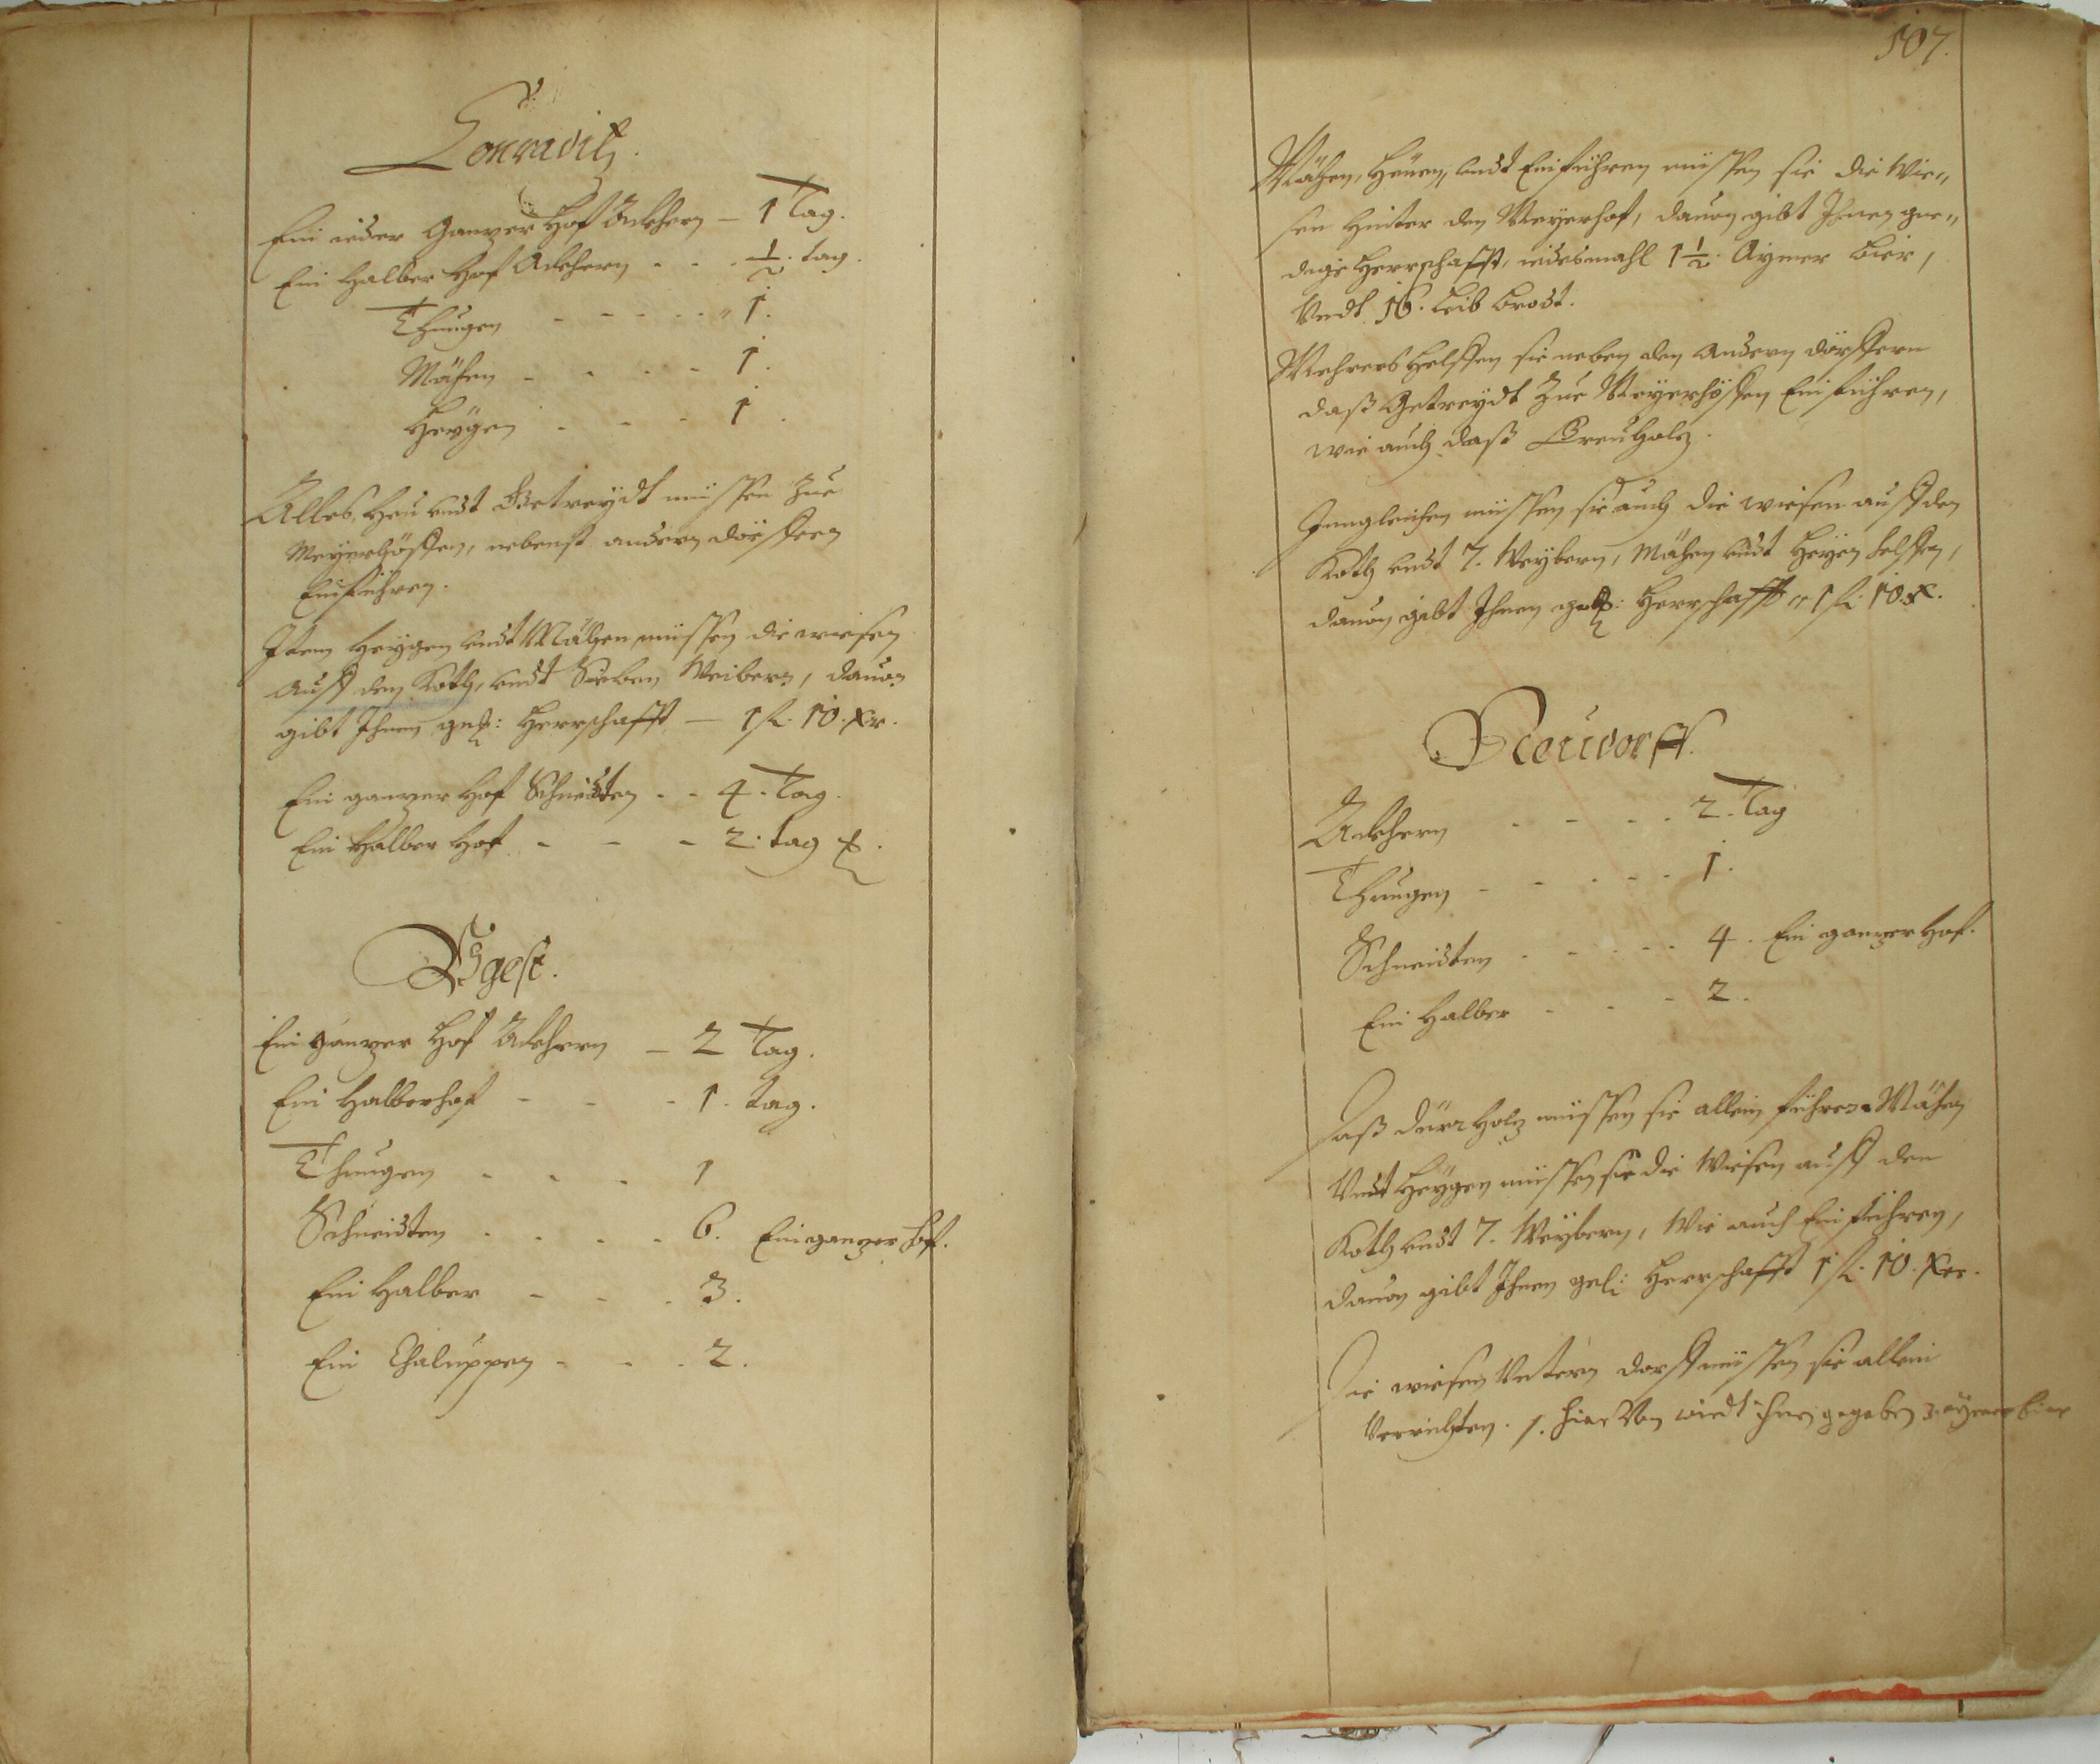 Conraditz.
Ein ieder Ganzer Hof Ackhern — 1 Tag.
Ein Halber Hof Ackhern - - - ½. tag.
Thungen - - - - - " 1.
Mähen - - - - 1.
Heÿgen - - - 1.
Alles Heu undt Getreydt müssen zue
Meyerhöffen, nebenst andern dörffern
Einführen.
Item Heÿgen undt Mähen müssen die wiesen
auff den Koth, undt Sieben Weibern, dauon
gibt Ihnen gnd: Herrschafft — 1 fl. 10. xr.
Ein ganzer Hof Schneidten - - 4. Tag.
Ein Halber Hof - - - 2. tag
Ein ganzer Hof Ackhern — 2 Tag.
Ein Halberhof - - - 1. tag.
Thungen - - - 1
Schneidten - - - - 6. Ein ganzer Hof.
Ein Halber - - - 3.
Ein Chaluppen - - - 2.
107.
Mähen, Heuen, undt Einführen müssen sie die Wie„
sen Hinter den Meyerhof, dauon gibt Ihnen gne„
dige Herrschafft, iedesmahl 1½. Aymer Bier,
Vndt 16. Leib Brodt.
Mehrers Helffen sie neben den andern dörffern
daß Getreydt Zue Meyerhöffen Einführen,
wie auch daß Breuholz.
Inngleichen müssen sie auch die wiesen auff den
Koth undt 7. Weybern, Mähen undt Heyen helffen,
dauon gibt Ihnen gnd: Herrschafft 1 fl. 10. x.
Neudorff.
Ackhern - - - - 2. Tag
Thungen - - - - - 1.
Schneidten - - - - - 4. Ein ganzer Hof.
Ein Halber - - - 2.
Daß dürr Holz müssen sie allein führen Mähen
Vndt Heÿgen müssen sie die Wiesen auff den
Koth undt 7. Weybern, Wie auch Einführen,
dauon gibt Ihnen Herrschafft 1 fl. 10. xr.
Die wiesen Vntern dorff müssen sie allein
Verrichten. hier Von wirdt ihnen gegeben 3. aymer bier